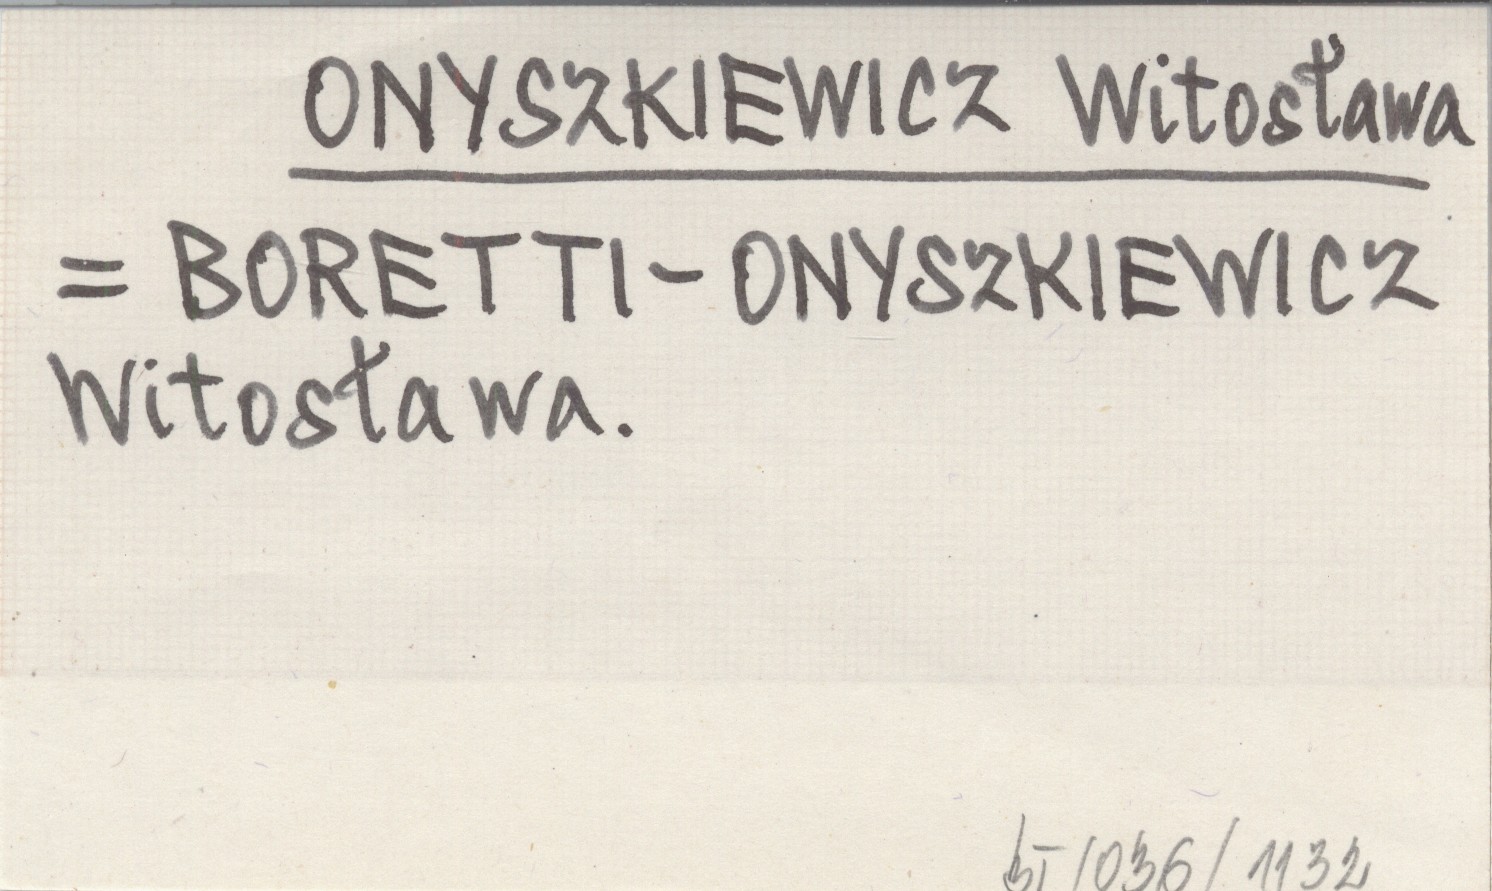 ONYSZKIEWICZ Witosława
= BORETTI-ONYSZKIEWICZ
Witosława.
BI/036/1132